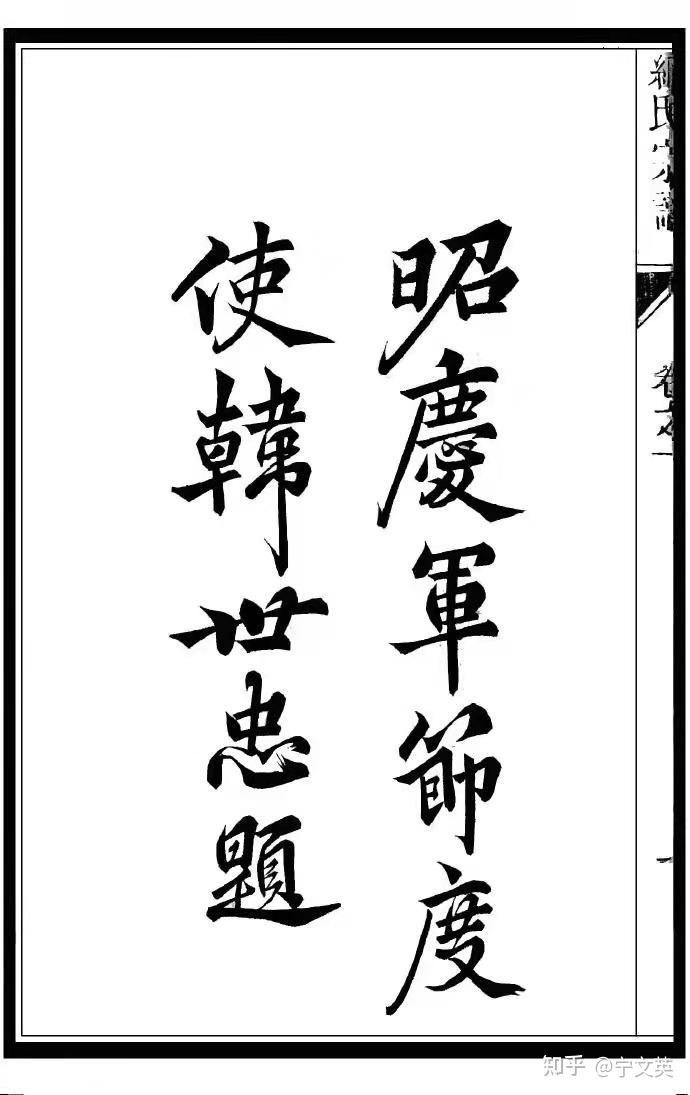 昭慶軍節度
使韓世忠題
氏宗譜
卷之一
知乎 @宁文英